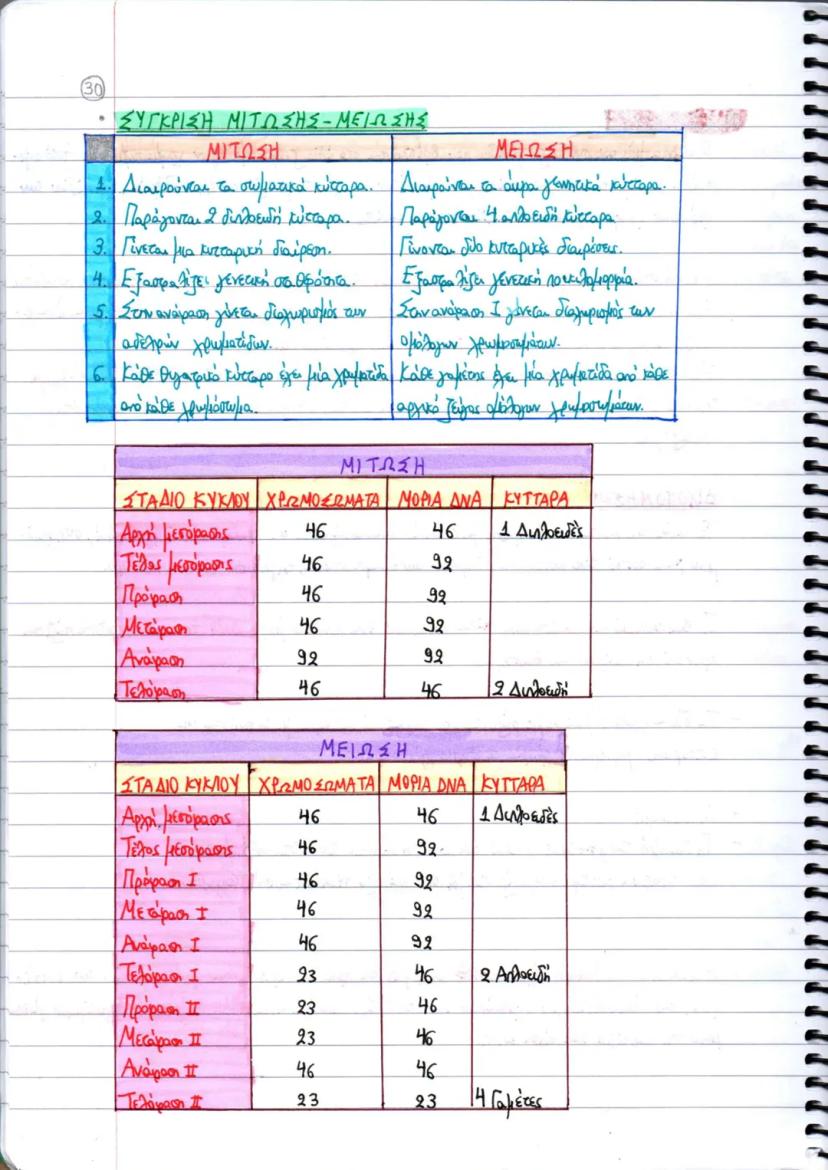 30
• ΣΥΓΚΡΙΣΗ ΜΙΤΩΣΗΣ-ΜΕΙΩΣΗΣ
ΜΙΤΩΣΗ ΜΕΙΩΣΗ
1. Διαιρούνται τα σωματικά κύτταρα. Διαιρούνται τα άωρα γεννητικά κύτταρα.
2. Παράγονται 2 διπλοειδή κύτταρα. Παράγονται 4 απλοειδή κύτταρα
3. Γίνεται μια κυτταρική διαίρεση. Γίνονται δύο κυτταρικές διαιρέσεις.
4. Εξασφαλίζει γενετική σταθερότητα. Εξασφαλίζει γενετική ποικιλομορφία.
5. Στην ανάφαση γίνεται διαχωρισμός των Στην ανάφαση Ι γίνεται διαχωρισμός των
αδελφών χρωματίδων. ομόλογων χρωμοσωμάτων.
6. Κάθε θυγατρικό κύτταρο έχει μία χρωματίδα Κάθε γαμέτης έχει μία χρωματίδα από κάθε
από κάθε χρωμόσωμα. αρχικό ζεύγος ομόλογων χρωμοσωμάτων.
ΜΙΤΩΣΗ
ΣΤΑΔΙΟ ΚΥΚΛΟΥ ΧΡΩΜΟΣΩΜΑΤΑ ΜΟΡΙΑ DNA ΚΥΤΤΑΡΑ
Αρχή μεσόφασης 46 46 1 Διπλοειδές
Τέλος μεσόφασης 46 92
Πρόφαση 46 92
Μετάφαση 46 92
Ανάφαση 92 92
Τελόφαση 46 46 2 Διπλοειδή
ΜΕΙΩΣΗ
ΣΤΑΔΙΟ ΚΥΚΛΟΥ ΧΡΩΜΟΣΩΜΑΤΑ ΜΟΡΙΑ DNA ΚΥΤΤΑΡΑ
Αρχή μεσόφασης 46 46 1 Διπλοειδές
Τέλος μεσόφασης 46 92
Πρόφαση Ι 46 92
Μετάφαση Ι 46 92
Ανάφαση Ι 46 92
Τελόφαση Ι 23 46 2 Απλοειδή
Πρόφαση ΙΙ 23 46
Μετάφαση ΙΙ 23 46
Ανάφαση ΙΙ 46 46
Τελόφαση ΙΙ 23 23 4 Γαμέτες